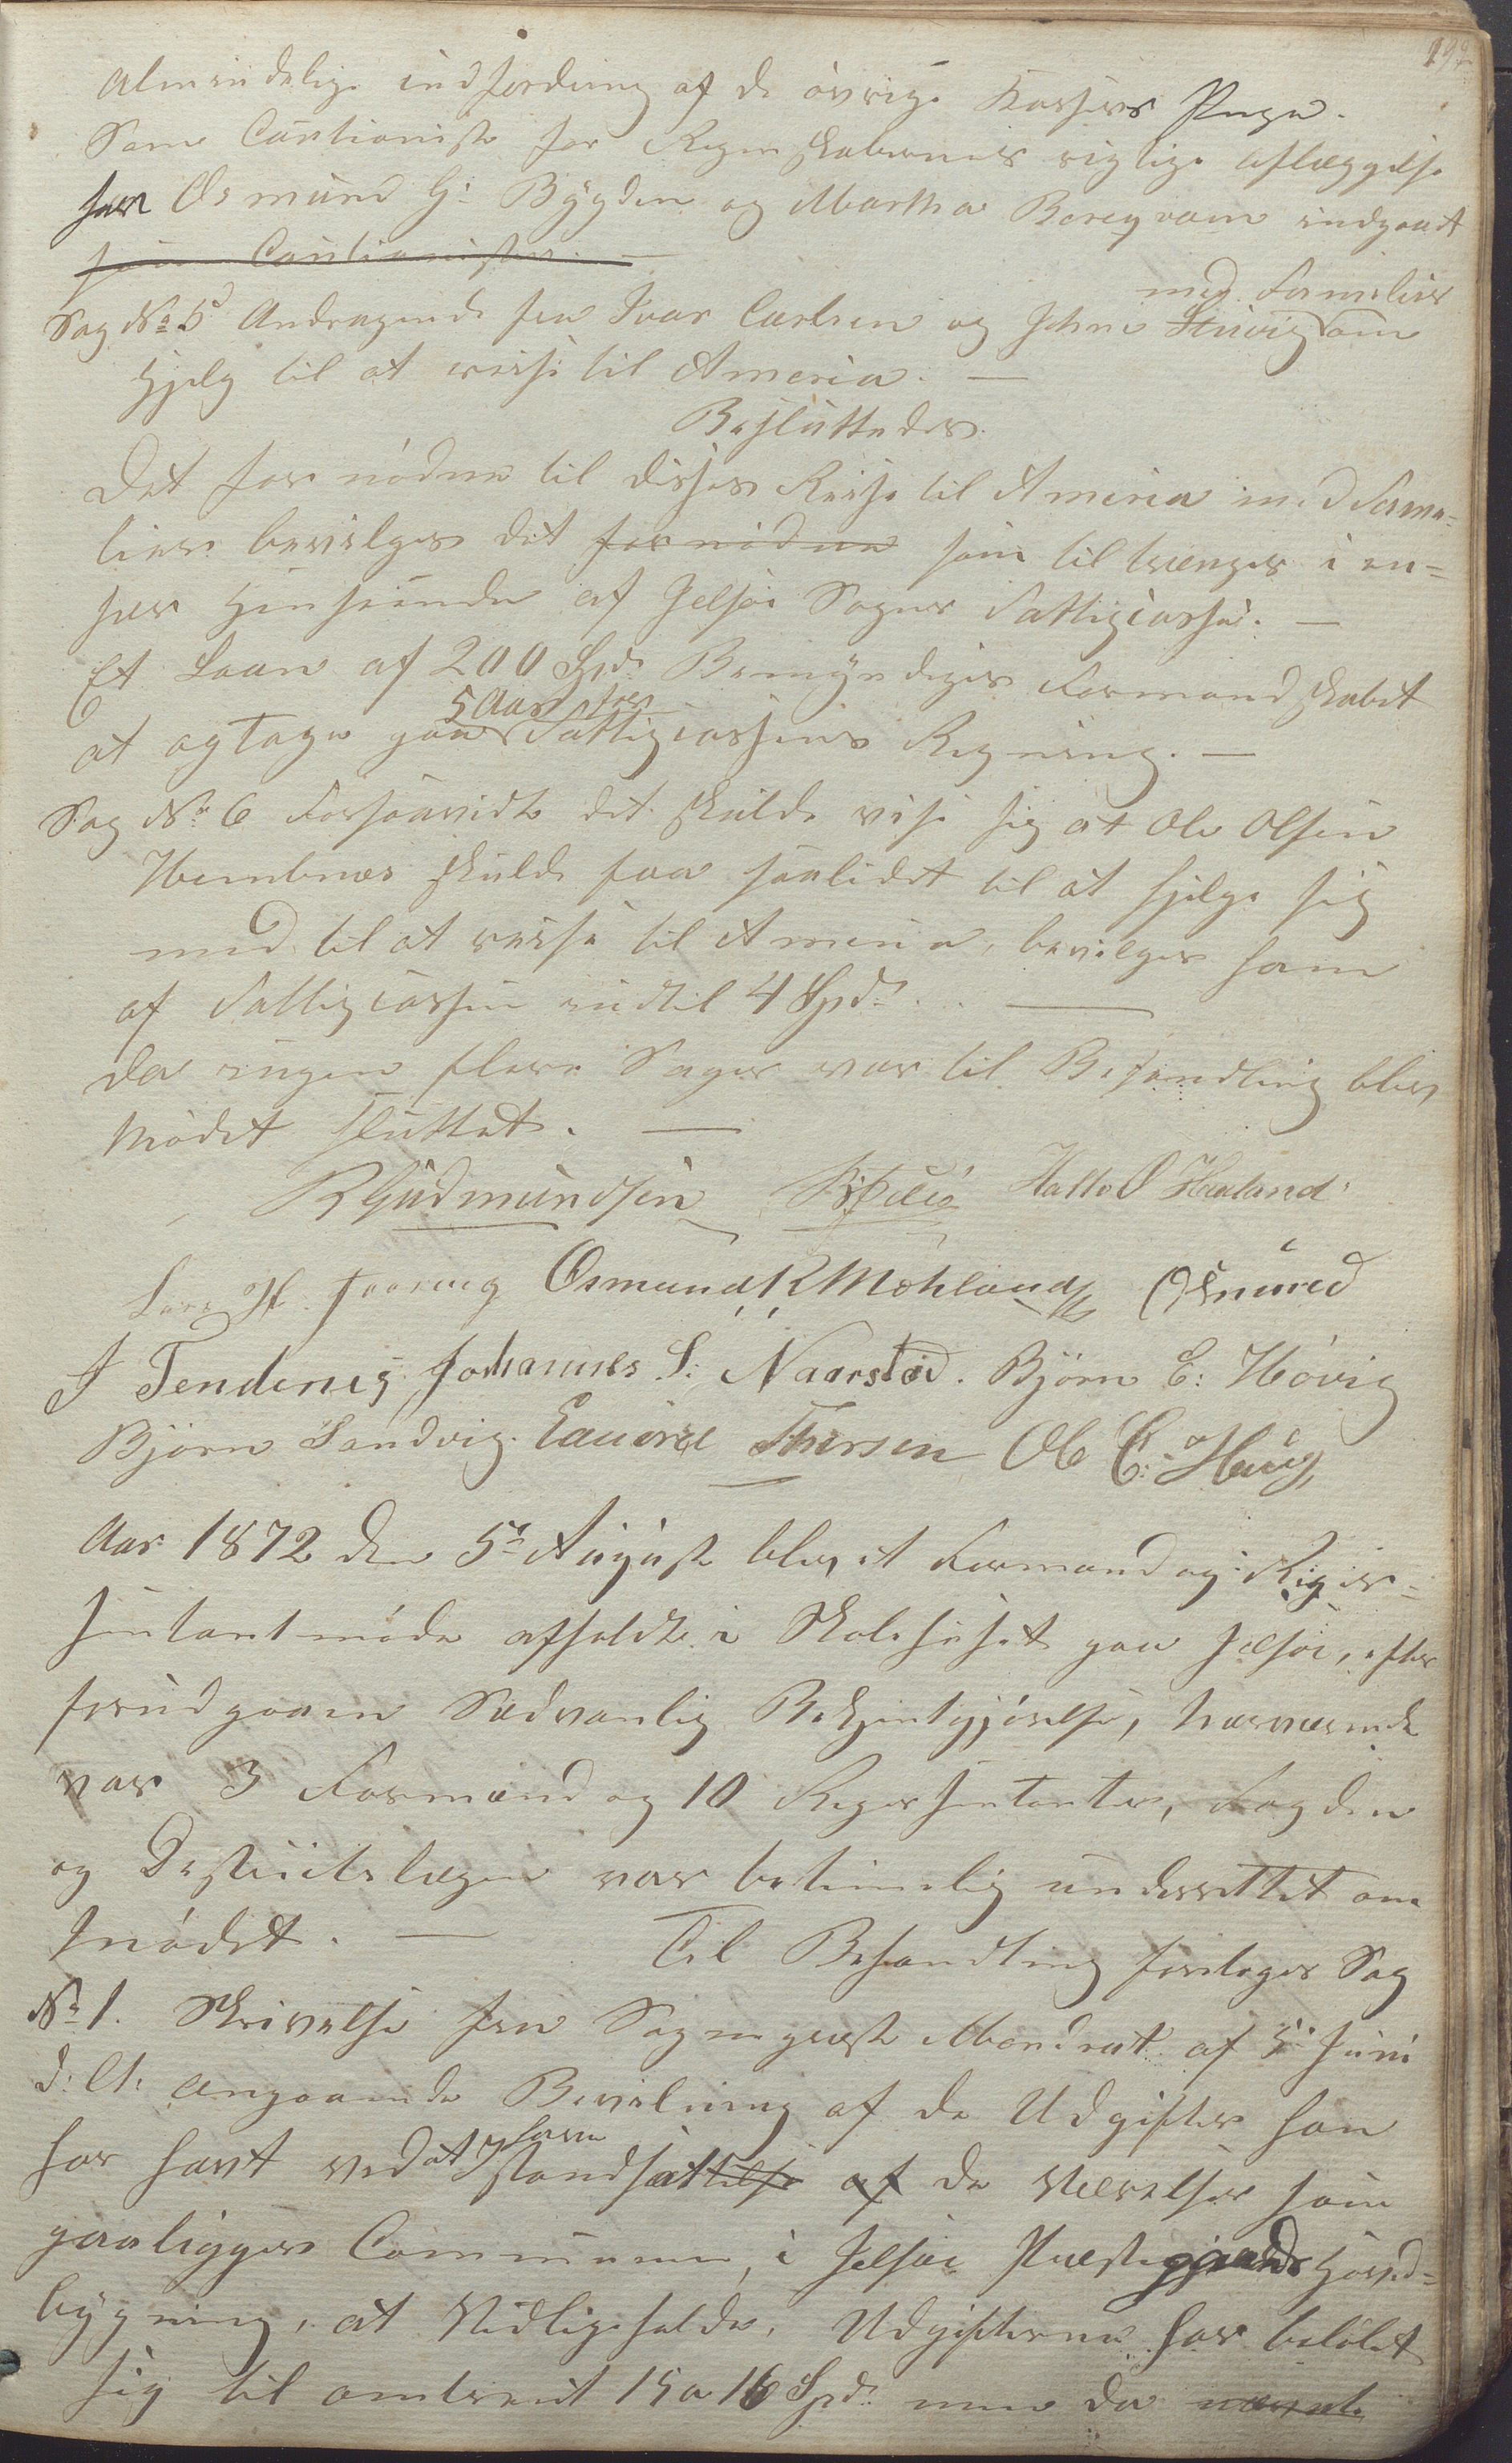 192
Almindelige indfordring af de øvrige Kassers Penge.
Som Cautionist for Regnskabernes rigtige aflæggelse
har Osmund G: Bygden og Martha Bereqvam indgaaet
som Cautionister. —
med Familier
Sag No 5 Andragende fra Ivar Carlsen og John Høivig om
Hjelp til at reise til America. —
Besluttedes.
Det fornødne til disses Reise til America med Fami=
lier bevilges det fornødne som tiltrænges i en=
hver Henseende af Jelsøe Sogns Fattigcasse. —
Et Laan af 200 Spd. Bemyndiges Formandskabet
5 Aar for
at optage paa Fattigcassens Regning. —
Sag No 6 Forsaavidt det skulde vise sig at Ole Olsen
Hembnes skulde faa forlidet til at hjelpe sig
med til at reise til America, bevilges ham
af Fattigcassen indtil 4 Spd. —
Da ingen flere Sager var til Behandling blev
Mødet sluttet. —
R Gudmundsen Hallo O Hauland
Lars H. Foreeng Osmund R Mehland Osmund
J Tendenes Johannes S: Naarstad. Bjørn E: Høvig
Bjørn Sandvig. Edvard Thorsen Ole C: Haug
Aar 1872 den 5te August blev et Formand og Repræ=
sentantmøde afholdt i Skolehuset paa Jelsøe, efter
forudgaaen Sædvanlig Bekjentgjørelse, nærværende
var 3 Formænd og 10 Repræsentanter, Fogden
og Destrictslægen var betimelig underrettet om
Mødet. — Til Behandling foretoges Sag
No 1. Skrivelse fra Sogneprest Mandrut af 5 Juni
d: A: angaaende Bevilning af de Udgifter han
som
har havt ved at Istandsættelse af de Værelser som
paaligger Communen, i Jelsøe Præstegjælds Hoved=
bygning, at Vedligeholde, Udgifterne har beløbet
sig til omtrent 15 a 16 Spd. men da